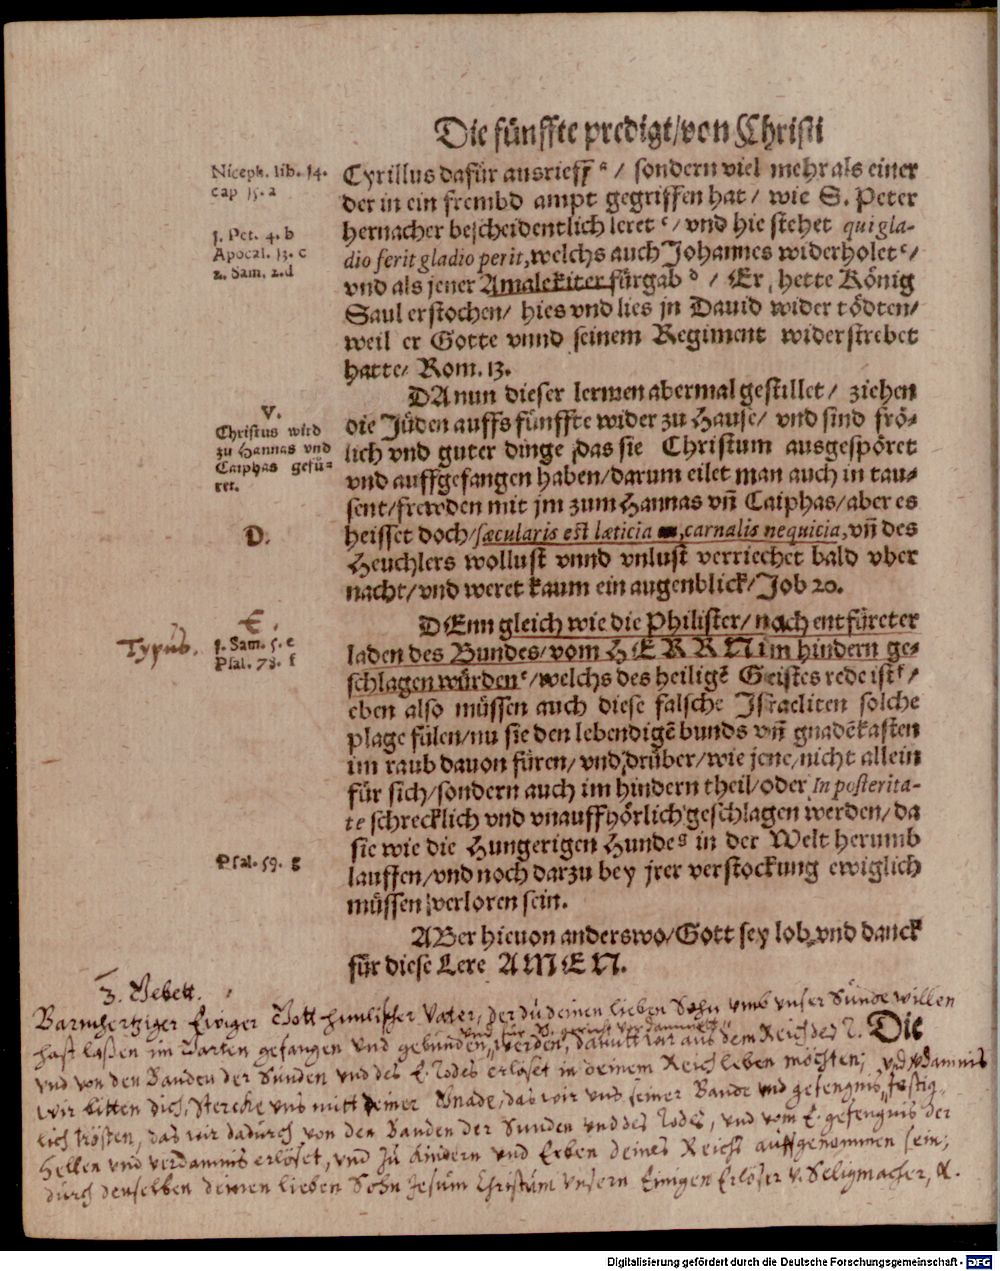 Die fünffte predigt/von Christi
Niceph. lib. 14.
cap 15. a
Cyrillus dafür ausrieff ª / sondern viel mehr als einer
der in ein frembd ampt gegriffen hat / wie S. Peter
1. Pet. 4. b
Apocal. 13. c
2. Sam. 2. d
hernacher bescheidentlich leret ᶜ/ vnd hie stehet qui gla-
dio ferit gladio perit, welchs auch Johannes widerholet ᶜ/
vnd als jener Amalekiter fürgab ᵈ / Er, hette König
Saul erstochen/ hies vnd lies jn Dauid wider tödten/
weil er Gotte vnnd seinem Regiment widerstrebet
hatte/ Rom. 13.
DA nun dieser lermen abermal gestillet / ziehen
V.
Christus wird
zu Hannas vnd
Caiphas gefü-
ret.
die Jüden auffs fünffte wider zu Hause/ vnd sind frö-
lich vnd guter dinge, das sie Christum ausgespöret
vnd auffgefangen haben/darum eilet man auch in tau-
sent/frewden mit jm zum Hannas vñ Caiphas/aber es
D.
heisset doch/sæcularis est læticia, carnalis nequicia, vñ des
Heuchlers wollust vnnd vnlust verriechet bald vber
nacht/vnd weret kaum ein augenblick/Job 20.
E.
Typus.
1. Sam. 5. e
Psal. 78. f
DEnn gleich wie die Philister/ nach entfüreter
laden des Bundes/vom HERRN im hindern ge-
schlagen würden ᵉ/welchs des heiligẽ Geistes rede ist ᶠ/
eben also müssen auch diese falsche Israeliten solche
plage fülen/nu sie den lebendigẽ bunds vñ gnadẽkasten
im raub dauon füren/vnd drüber/wie jene/nicht allein
für sich/sondern auch im hindern theil/oder In posterita-
te schrecklich vnd vnauffhörlich geschlagen werden/da
Psal. 59. g
sie wie die Hungerigen Hunde ᵍ in der Welt herumb
lauffen/vnd noch darzu bey jrer verstockung ewiglich
müssen verloren sein.
ABer hieuon anderswo/Gott sey lob vnd danck
für diese Lere AMEN.
Die
3. Gebett.
Barmhertziger Ewiger Gott himlischer Vater, der du deinen lieben Sohn vmb vnser Sünde willen
hast laßen im Garten gefangen vnd gebunden werden, damitt wir aus dem Reich des
vnd von den Banden der Sünden vnd des E. Todes erlöset in deinem Reich leben möchten;
wir bitten dich, stercke vns mitt deiner Gnade, das wir vns seiner Bande vnd gefengnis festig-
lich trösten, das wir dadurch von den Banden der Sünden vnd des Todes, vnd vom E. gefengnis der
Hellen vnd verdamnis erlöset, vnd zu Kindern vnd Erben deines Reichs auffgenommen sein;
durch denselben deinen lieben Sohn Jesum Christum vnsern Einigen Erlöser v. Seligmacher, &.
Digitalisierung gefördert durch die Deutsche Forschungsgemeinschaft - DFG